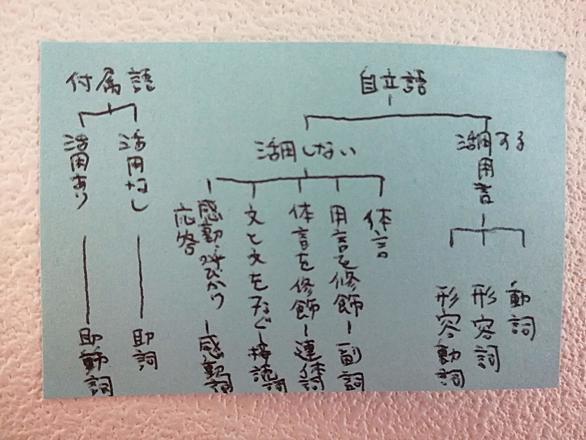 自立語
活用する
用言
動詞
形容詞
形容動詞
活用しない
体言
用言を修飾ー副詞
体言を修飾ー連体詞
文と文をつなぐー接続詞
感動・呼びかけ
応答
ー感動詞
付属語
活用なし
助詞
活用あり
助動詞